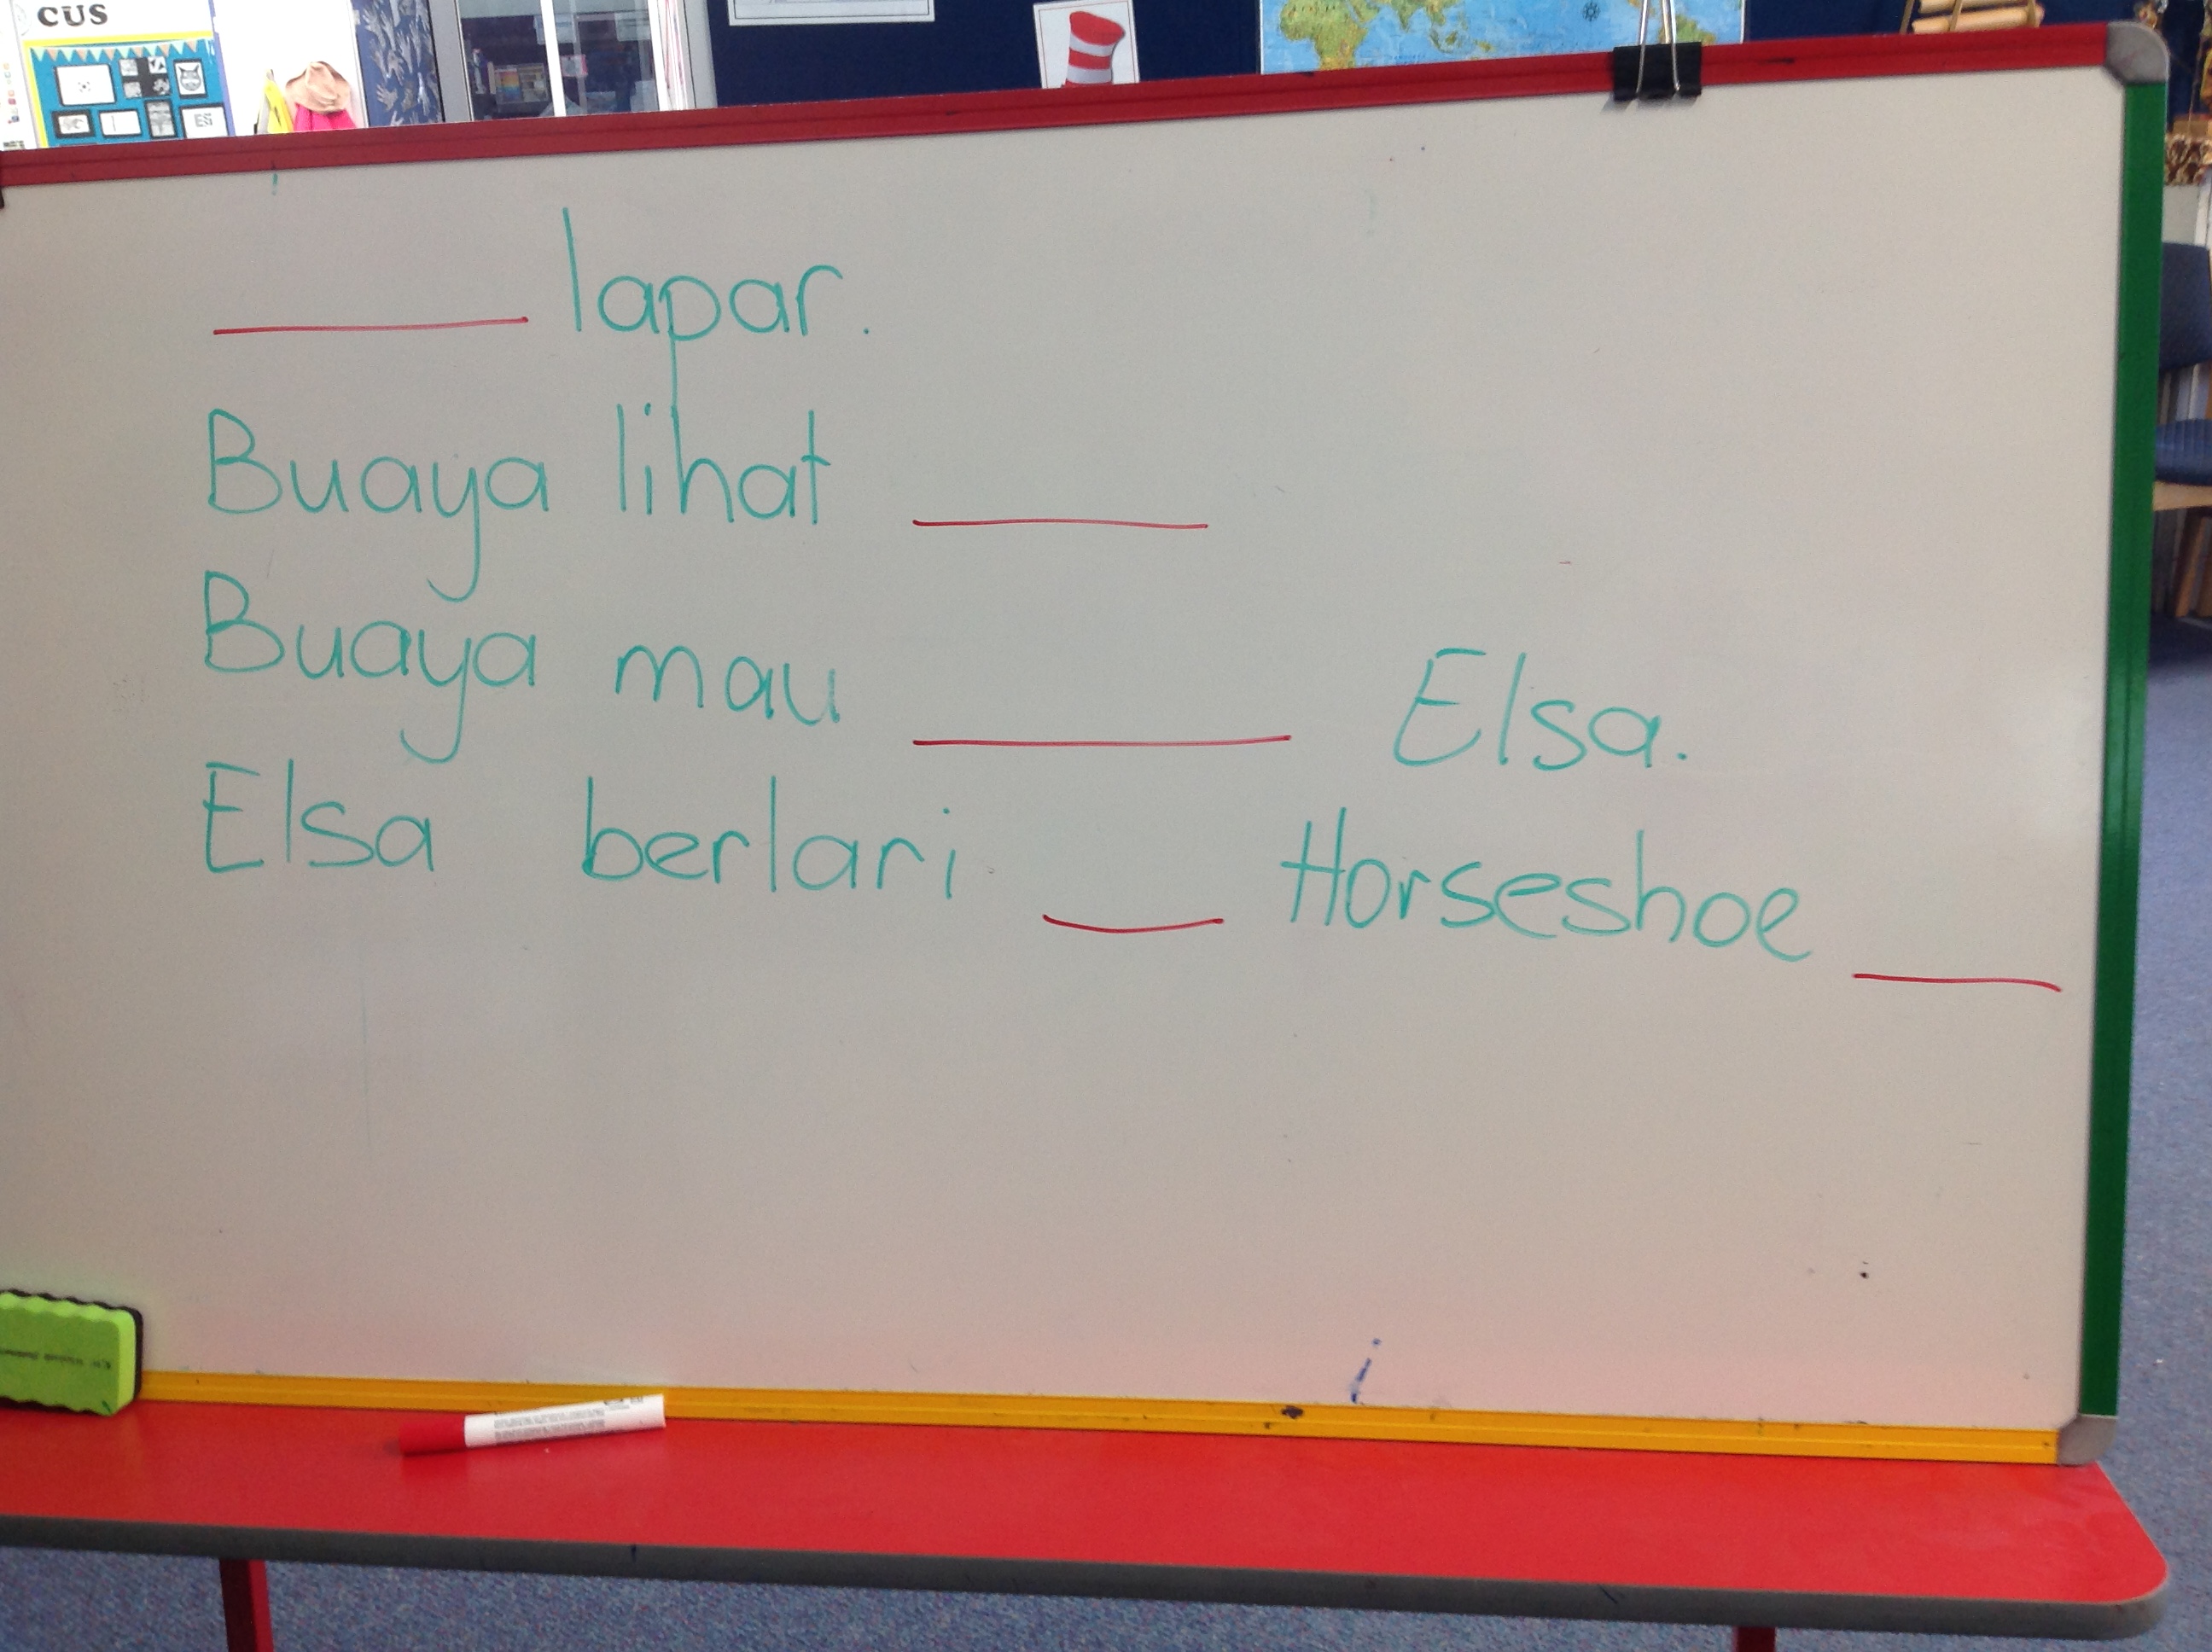 CUS
____ lapar.
Buaya lihat ____
Buaya mau ____ Elsa.
Elsa berlari ____ Horseshoe ____